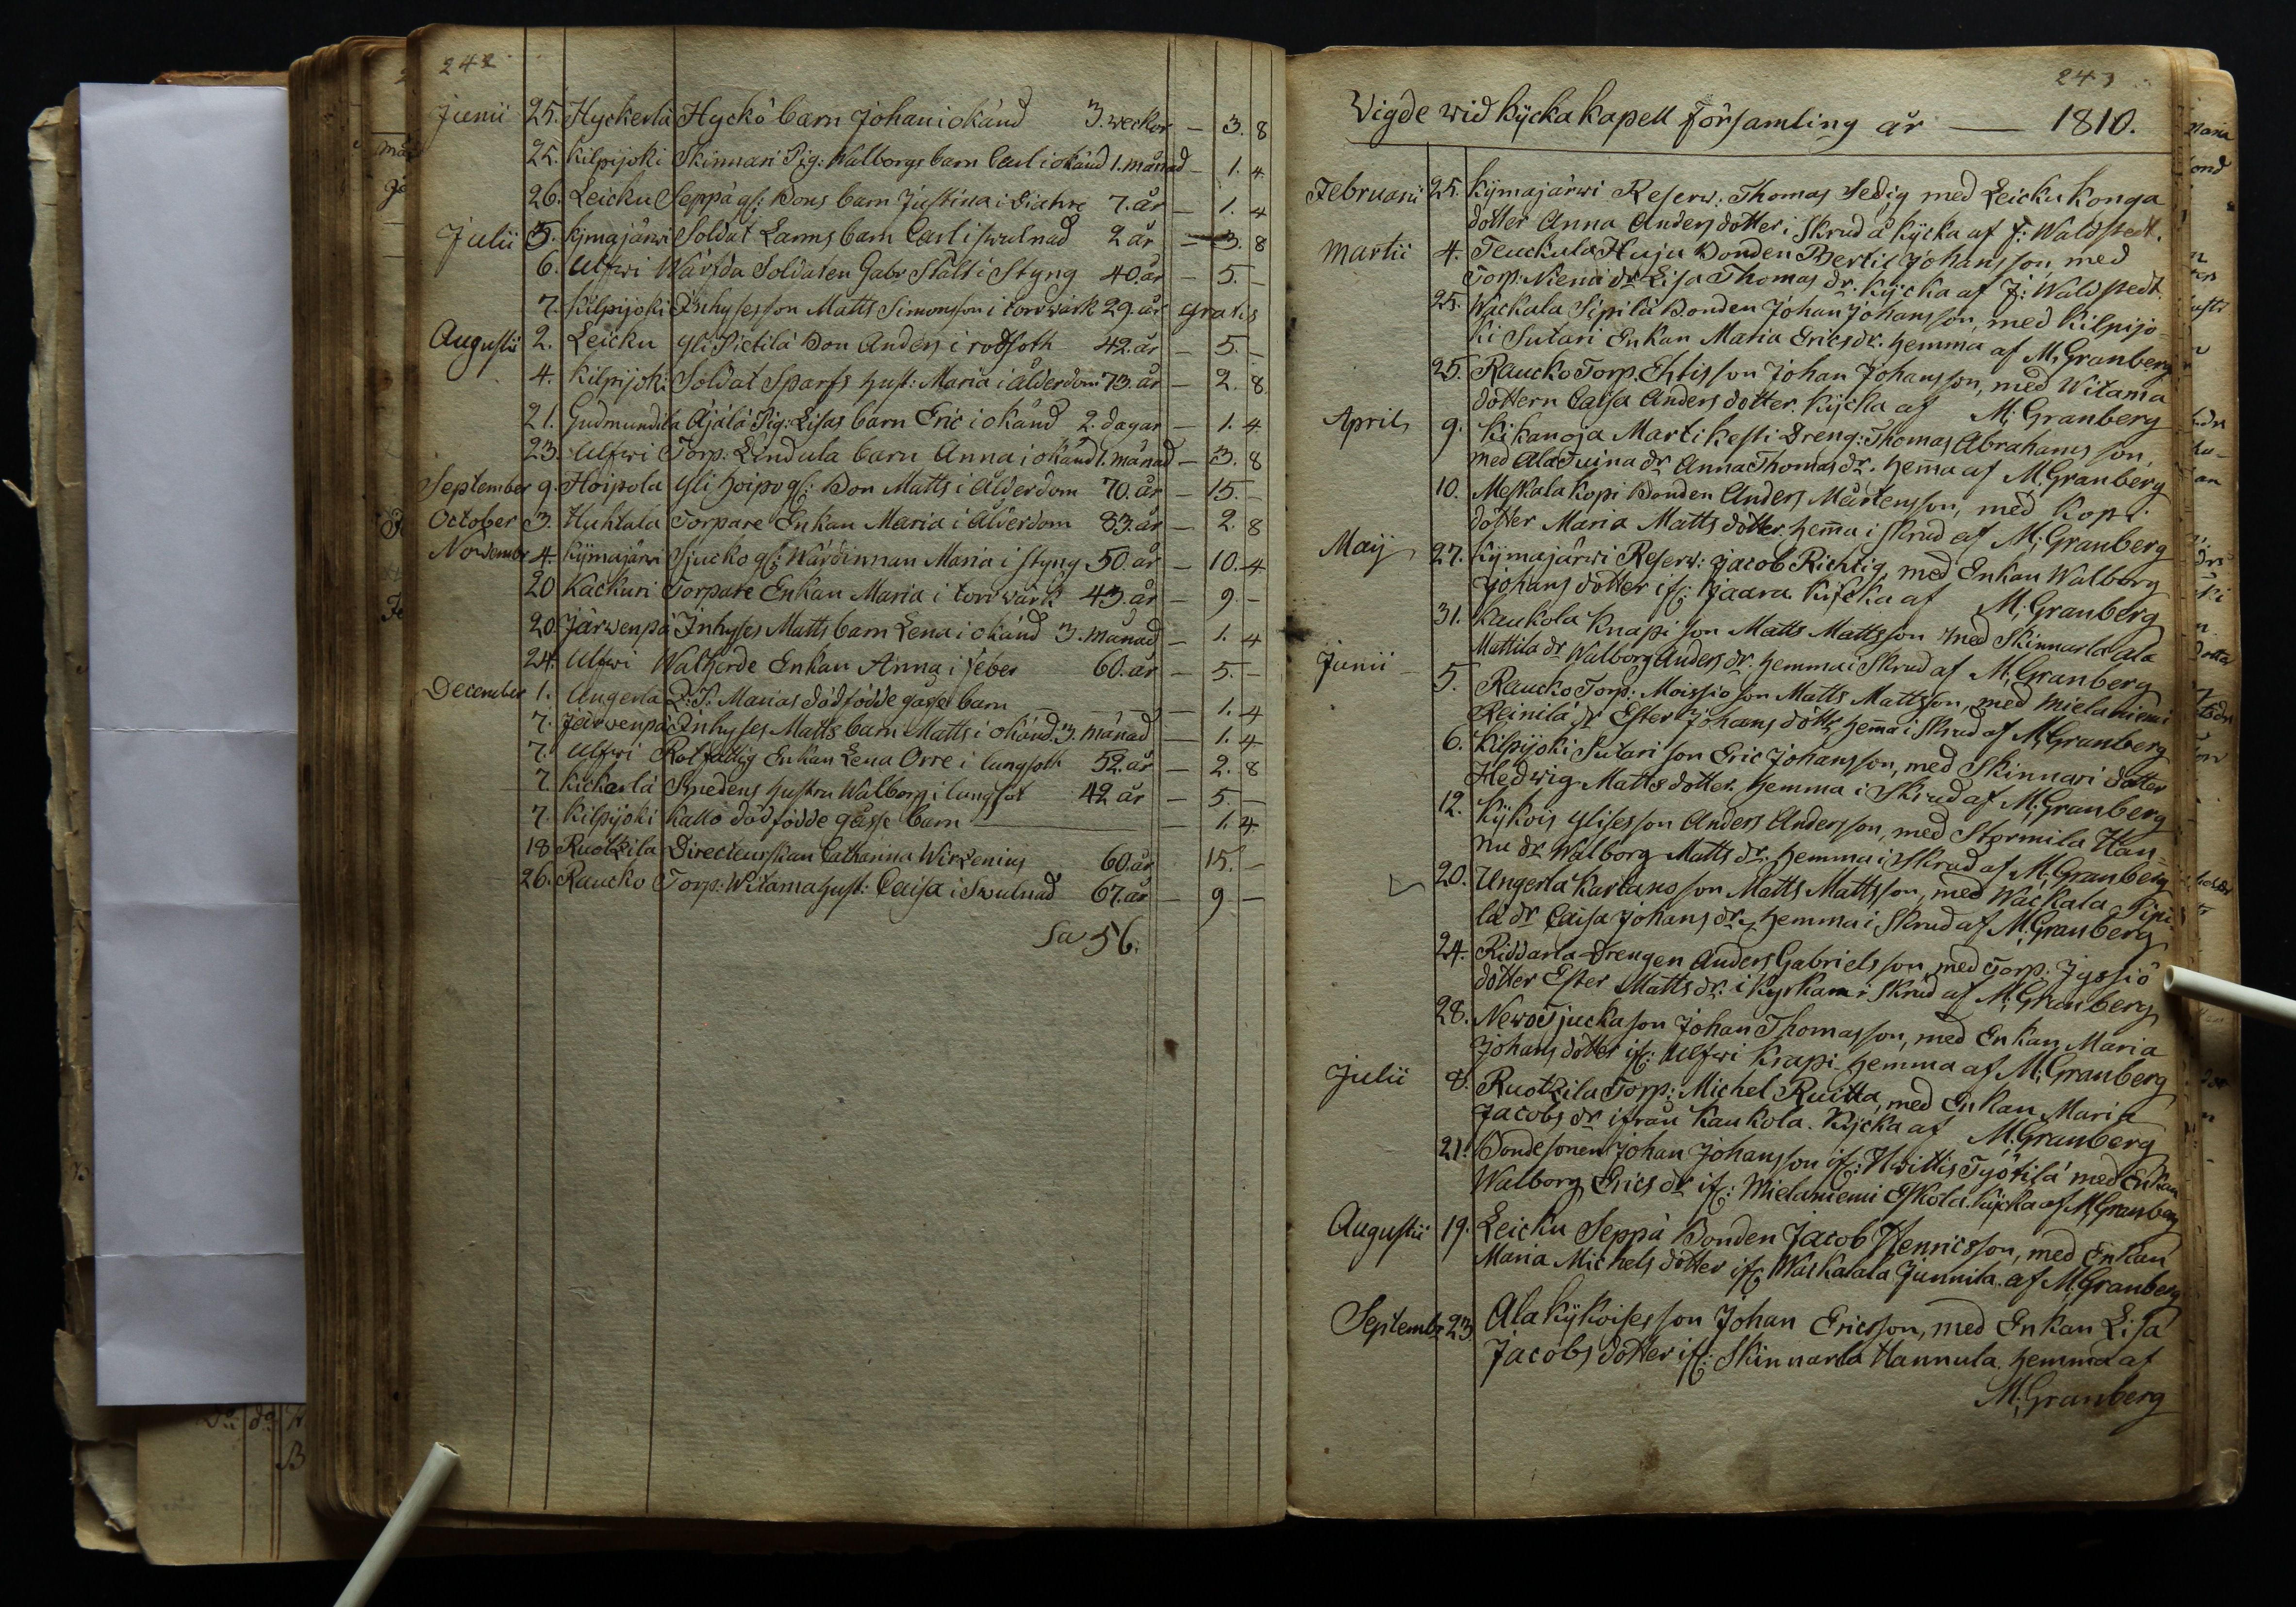 242
Junii 25. Hyckerlä Hyckö barn Johan i okänd 3. weckor — 3. 8
25. Kilpijoki Skinnari Pig: Walborgs barn Carl i okänd 1. månad — 1. 4
26. Leicku Seppä gl: Bons barn Justina i Diahre 7. år — 1. 4
Julii 5. Kijmajärwi Soldat Lanns barn Carl i swulnad 2 år — 3. 8
6. Ulfwi Wärfda Soldaten Gabr Stålt i Styng 40. år — 5. —
7. Kilpijoki Inhyses son Matts Simonsson i torrwärk 29. år gratis
Augustii 2. Leicku Yli Pietilä Bon Anders i rodsoth 42. år — 5. —
4. Kilpijoki Soldat Sparfs hust: Maria i ålderdom 73. år — 2. 8
21. Gudmundila Äjälä Pig: Lisas barn Eric i okänd 2. dagar — 1. 4
23. Ulfwi Torp: Lindula barn Anna i okänd 1. månad — 3. 8
September 9. Hoipola Yli hoipo gl: Bon Matts i ålderdom 70. år — 15. —
October 3. Huhtala Torpare Enkan Maria i ålderdom 83. år — 2. 8
Novembr 4. Kijmajärwi Sjucko gl: Wärdinnan Maria i styng 50. år — 10. 4
20 Kackuri Torpare Enkan Maria i torrwärk 43. år — 9. —
20 Järwenpä Inhyses Matts barn Lena i okänd 3. månad — 1. 4
24. Ulfwi Walherde Enkan Anna i feber 60. år — 5. —
December 1. Ungerla Q: P: Marias dödfödde gosse barn — 1. 4
7. Järvenpä Inhyses Matts barn Matts i okänd. 3. månad — 1. 4
7. Ulfwi Rotfattig Enkan Lena Orre i lungsoth 52. år — 2. 8
7. Kickerlä Smedens hustru Walborg i lungsot 42 år — 5. —
7. Kilpijoki Kallo död födde gosse barn — 1. 4
18 Ruotzila Directeurskan Catharina Wirzenius 60. år 15. —
26. Raucko Torp: Witama hust: Caisa i Swulnad 67. år — 9 —
Sa 56.
243
Vigde wid Kÿcka Kapell Församling år — 1810.
Februarii 25. Kijmajärwi Reserv: Thomas Sedig med Leicku Konga
dotter Anna Anders dotter i Skrud å Kÿcka af J: Waldstedt.
Martii 4. Teuckula Huju Bonden Bertil Johansson, med
Torp. Niemi dr Lisa Thomas dr. Kÿcka af J: Waldstedt.
25. Wackala Sipilä Bonden Johan Johansson, med Kilpijo-
ki Sutari Enkan Maria Erics dr. hemma af M. Granberg
25. Raucko Torp. Ehtis son Johan Johansson, med Witama
dottern Caisa Anders dotter. Kÿcka af M: Granberg
April 9. Kikanoja Marti Kesti Dreng: Thomas Abrahams son,
med Ala Tuina dr Anna Thomas dr. hemma af M. Granberg
10. Meskala Kopi Bonden Anders Mårtensson, med Kopi
dotter Maria Matts dotter. hemma i skrud af M: Granberg
Maij 27. Kÿmajärwi Reserv: Jacob Richtig, med Enkan Walborg
Johans dotter ifr: Kjaara. Kÿcka af M: Granberg
31. Kaukola Knapi son Matts Mattsson med Skinnarla ala
Mattila dr Walborg Anders dr. hemma i Skrud af M; Granberg
Junii 5. Raucko Torp: Moissio son Matts Mattsson, med Mielaniemi
Reinilä dr Ester Johans dotter hemma i Skrud af M; Granberg
6. Kilpijoki Sutari son Eric Johansson, med Skinnari dotter
Hedwig Matts dotter. hemma i Skrud af M: Granberg
12. Kÿkois Ylises son Anders Andersson, med Stormila Han-
nu dr Walborg Matts dr: hemma i Skrud af M: Granberg
20. Ungerla Kartano son Matts Mattsson, med Wackala Sipi-
lä dr Caisa Johans dr., hemma i Skrud af M: Granberg
24. Riddarla Drengen Anders Gabriels son, med Torp: Jyssiö
dotter Ester Matts dr: i Kyrkan i Skrud af M: Granberg
28. Newo Tjucka son Johan Thomasson, med Enkan Maria
Johans dotter ifr: Ulfwi Krapi hemma af M: Granberg
Julii 8. Ruotzila Torp: Michel Ruitta, med Enkan Maria
Jacobs dr ifrån Kaukola. Kÿcka af M. Granberg
21. Bondesonen Johan Johansson ifr: Hwittis Työtilä med Enkan
Walborg Erics dr ifr: Mielaniemi Eskola. Kÿcka af M: Granberg
Augustii 19. Leicku Seppä Bonden Jacob Henricsson, med Enkan
Maria Michels dotter ifr: Waskalala Junnila. af M: Granberg
Septembr 23 Ala Kÿkoises son Johan Ericsson, med Enkan Lisa
Jacobs dotter ifr: Skinnarla Hannula, hemma af
M: Granberg